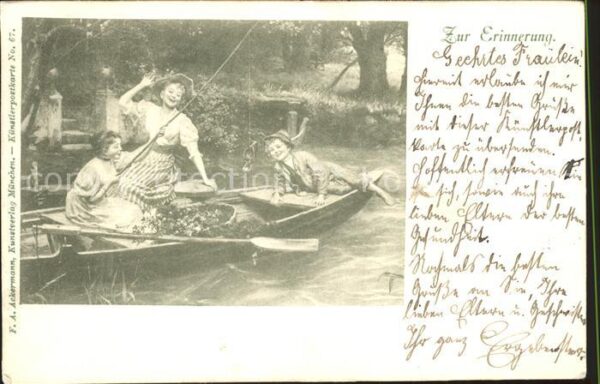 Zur Erinnerung.
Geehrtes Fräulein!
Hiermit erlaube ich mir
Ihnen die besten Grüße
mit dieser Künstlerpost
karte zu übersenden.
Hoffentlich erfreuen Sie
sich, sowie auch ihre
lieben Eltern der besten
Gesundheit.
Nochmals die besten
Grüße an Sie, Ihre
lieben Eltern u. Geschwister
Ihr ganz Ergebenster
F. A. Ackermann, Kunstverlag München. — Künstlerpostkarte No. 67.